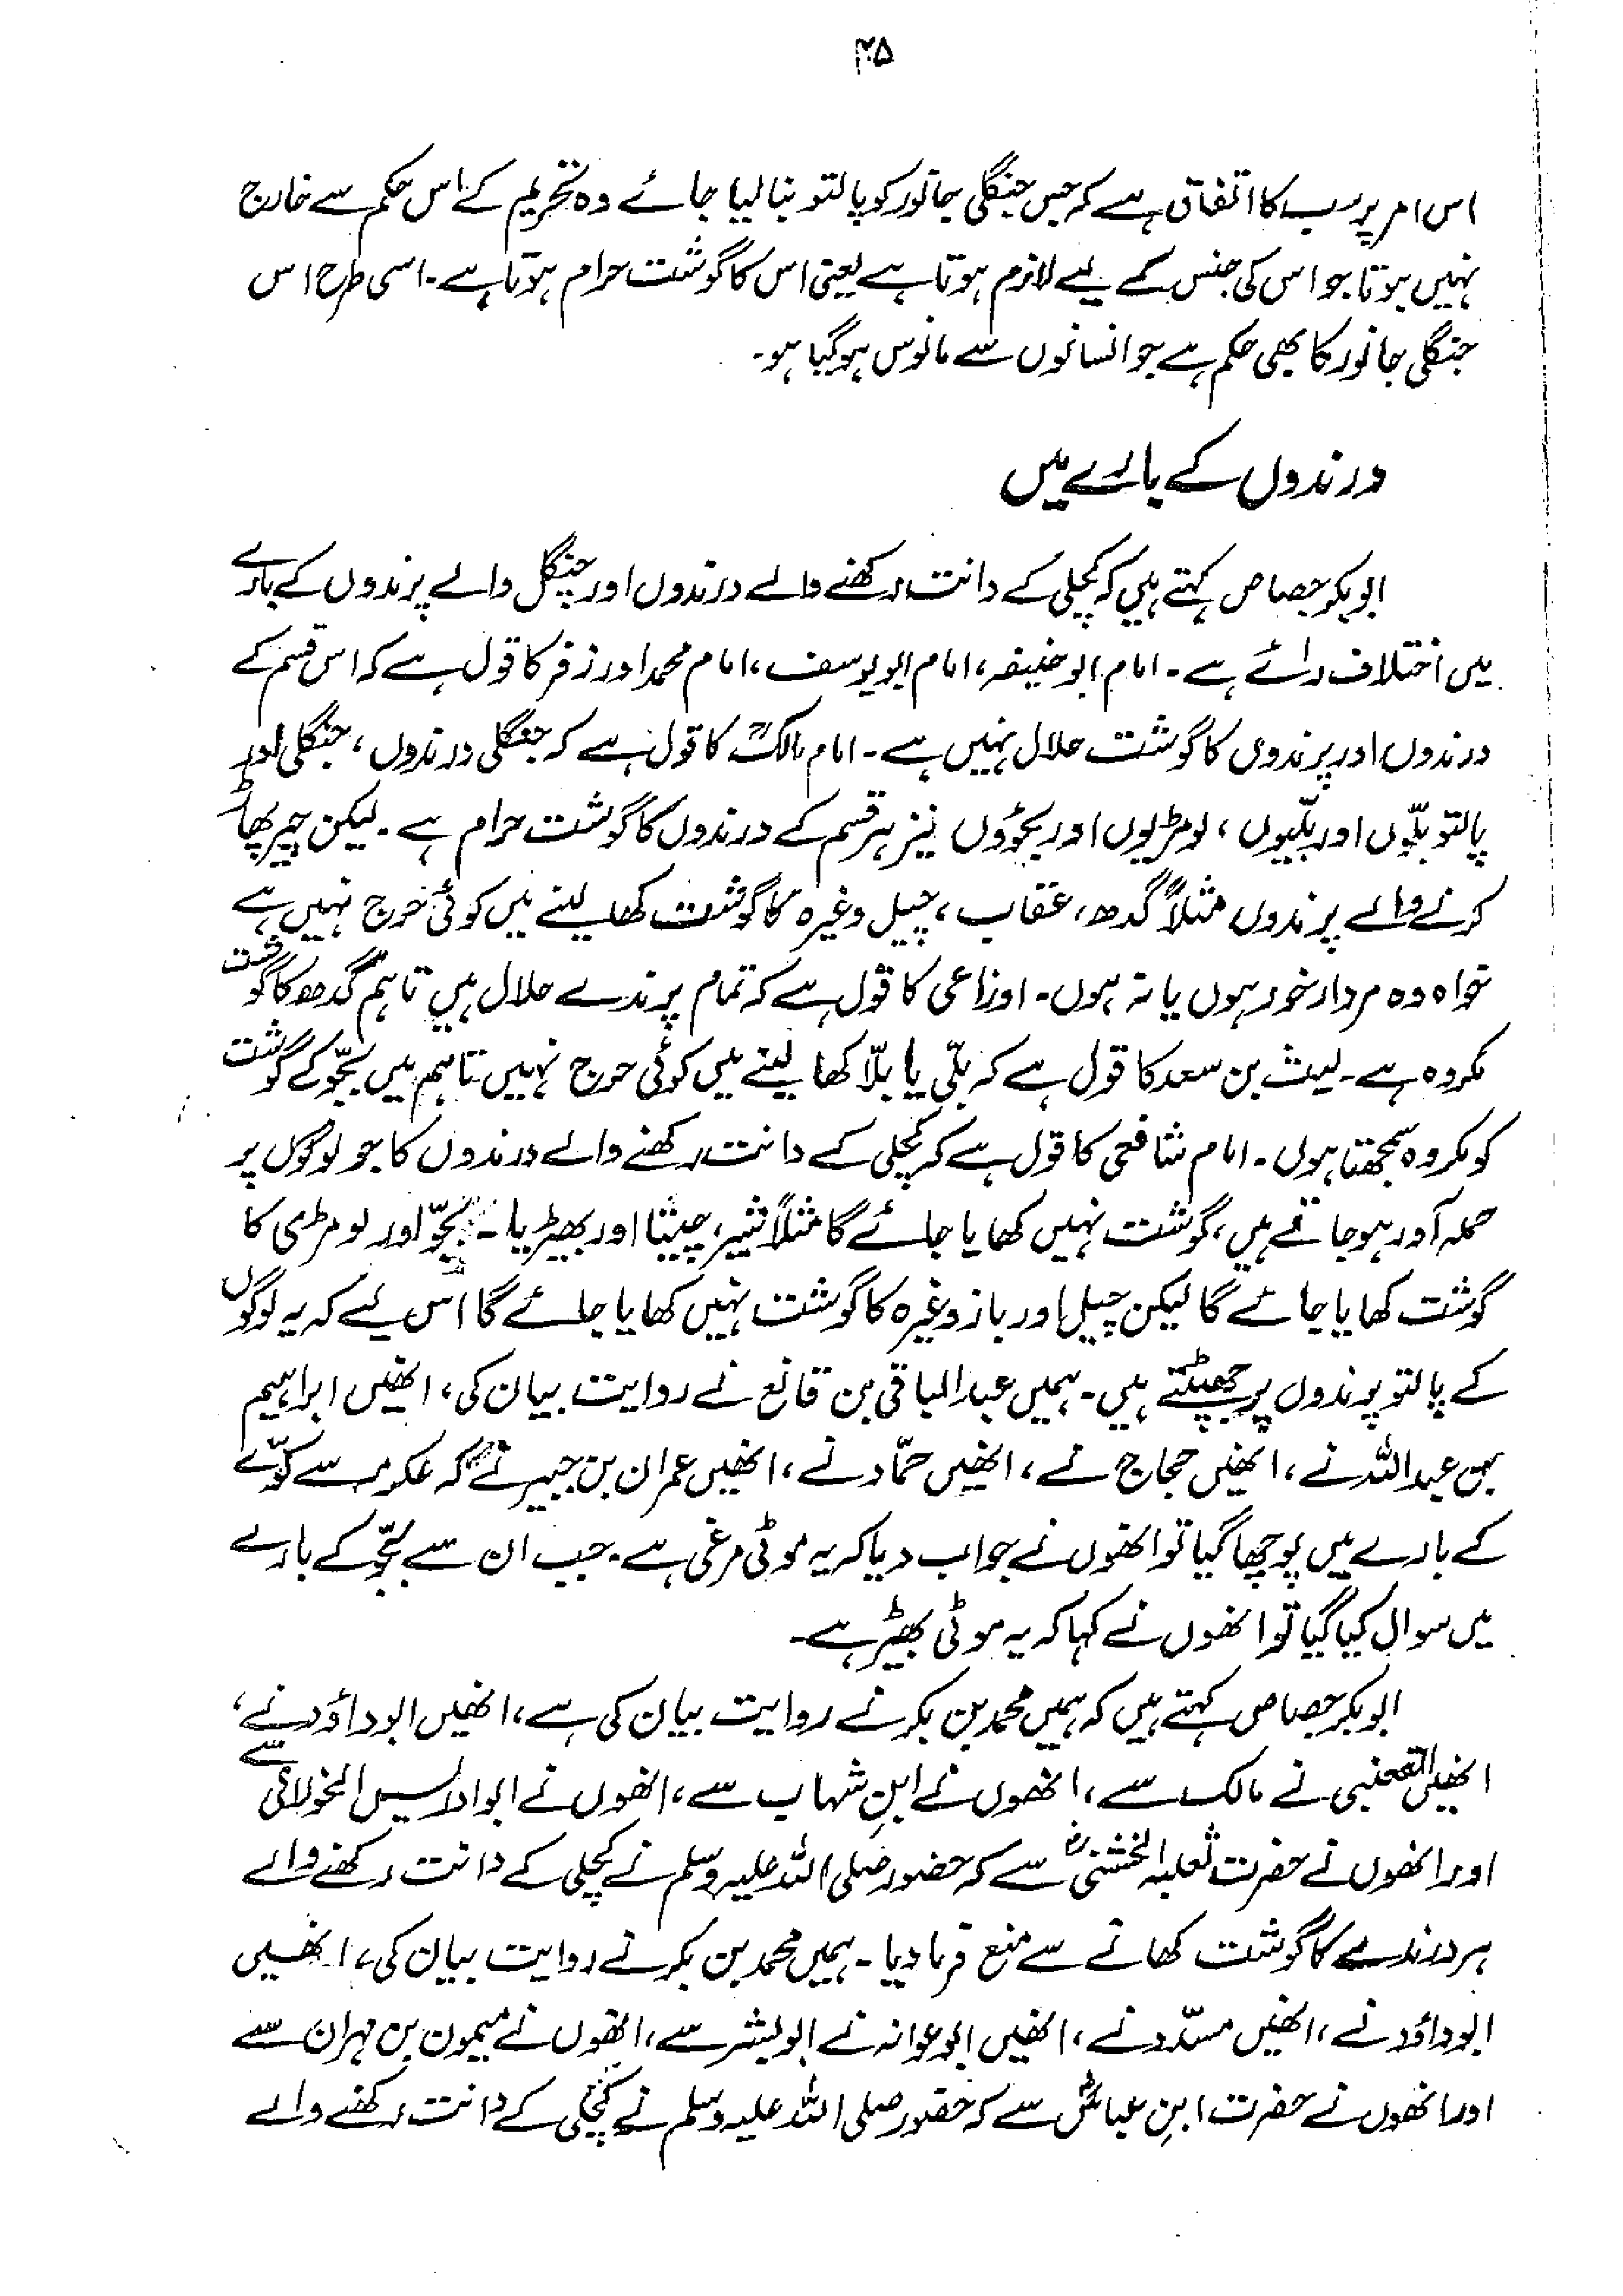 ۴۵
اس امر پر سب کا اتفاق ہے کہ جس جنگلی جانور کو پالتو بنا لیا جائے وہ تحریم کے اس حکم سے خارج
نہیں ہوتا جو اس کی جنس کے لیے لازم ہوتا ہے یعنی اس کا گوشت حرام ہوتا ہے۔ اسی طرح اس
جنگلی جانور کا بھی حکم ہے جو انسانوں سے مانوس ہو گیا ہو۔
درندوں کے بارے میں
ابوبکر جصاص کہتے ہیں کہ کچلی کے دانت رکھنے والے درندوں اور چنگل والے پرندوں کے بارے
میں اختلاف رائے ہے۔ امام ابو حنیفہ، امام ابو یوسف، امام محمد اور زفر کا قول ہے کہ اس قسم کے
درندوں اور پرندوں کا گوشت حلال نہیں ہے۔ امام مالکؒ کا قول ہے کہ جنگلی درندوں، جنگلی اور
پالتو بلّوں اور بلّیوں، لومڑیوں اور بجّوؤں نیز ہر قسم کے درندوں کا گوشت حرام ہے۔ لیکن چیر پھاڑ
کرنے والے پرندوں مثلاً گدھ، عقاب، چیل وغیرہ کا گوشت کھا لینے میں کوئی حرج نہیں ہے
خواہ وہ مردار خور ہوں یا نہ ہوں۔ اوزاعی کا قول ہے کہ تمام پرندے حلال ہیں تاہم گدھ کا گوشت
مکروہ ہے۔ لیث بن سعد کا قول ہے کہ بلّی یا بلّا کھا لینے میں کوئی حرج نہیں تاہم میں بجّو کے گوشت
کو مکروہ سمجھتا ہوں۔ امام شافعی کا قول ہے کہ کچلی کے دانت رکھنے والے درندوں کا جو لوگوں پر
حملہ آور ہو جاتے ہیں، گوشت نہیں کھایا جائے گا مثلاً شیر، چیتا اور بھیڑیا۔ بجّو اور لومڑی کا
گوشت کھایا جائے گا لیکن چیل اور باز وغیرہ کا گوشت نہیں کھایا جائے گا اس لیے کہ یہ لوگوں
کے پالتو پرندوں پر جھپٹتے ہیں۔ ہمیں عبدالباقی بن قانع نے روایت بیان کی، انھیں ابراہیم
بن عبداللہ نے، انھیں حجاج نے، انھیں حمّاد نے، انھیں عمران بن جبیر نے کہ عکرمہ سے کوّے
کے بارے میں پوچھا گیا تو انھوں نے جواب دیا کہ یہ موٹی مرغی ہے۔ جب ان سے بجّو کے بارے
میں سوال کیا گیا تو انھوں نے کہا کہ یہ موٹی بھیڑ ہے۔
ابوبکر جصاص کہتے ہیں کہ ہمیں محمد بن بکر نے روایت بیان کی ہے، انھیں ابو داؤد نے،
انھیں القعنبی نے مالک سے، انھوں نے ابنِ شہاب سے، انھوں نے ابو ادریس الخولانی سے
اور انھوں نے حضرت ثعلبہ الخشنیؓ سے کہ حضور صلی اللہ علیہ وسلم نے کچلی کے دانت رکھنے والے
ہر درندے کا گوشت کھانے سے منع فرما دیا۔ ہمیں محمد بن بکر نے روایت بیان کی، انھیں
ابو داؤد نے، انھیں مسدّد نے، انھیں ابو عوانہ نے ابو بشر سے، انھوں نے میمون بن مہران سے
اور انھوں نے حضرت ابنِ عباسؓ سے کہ حضور صلی اللہ علیہ وسلم نے کچلی کے دانت رکھنے والے